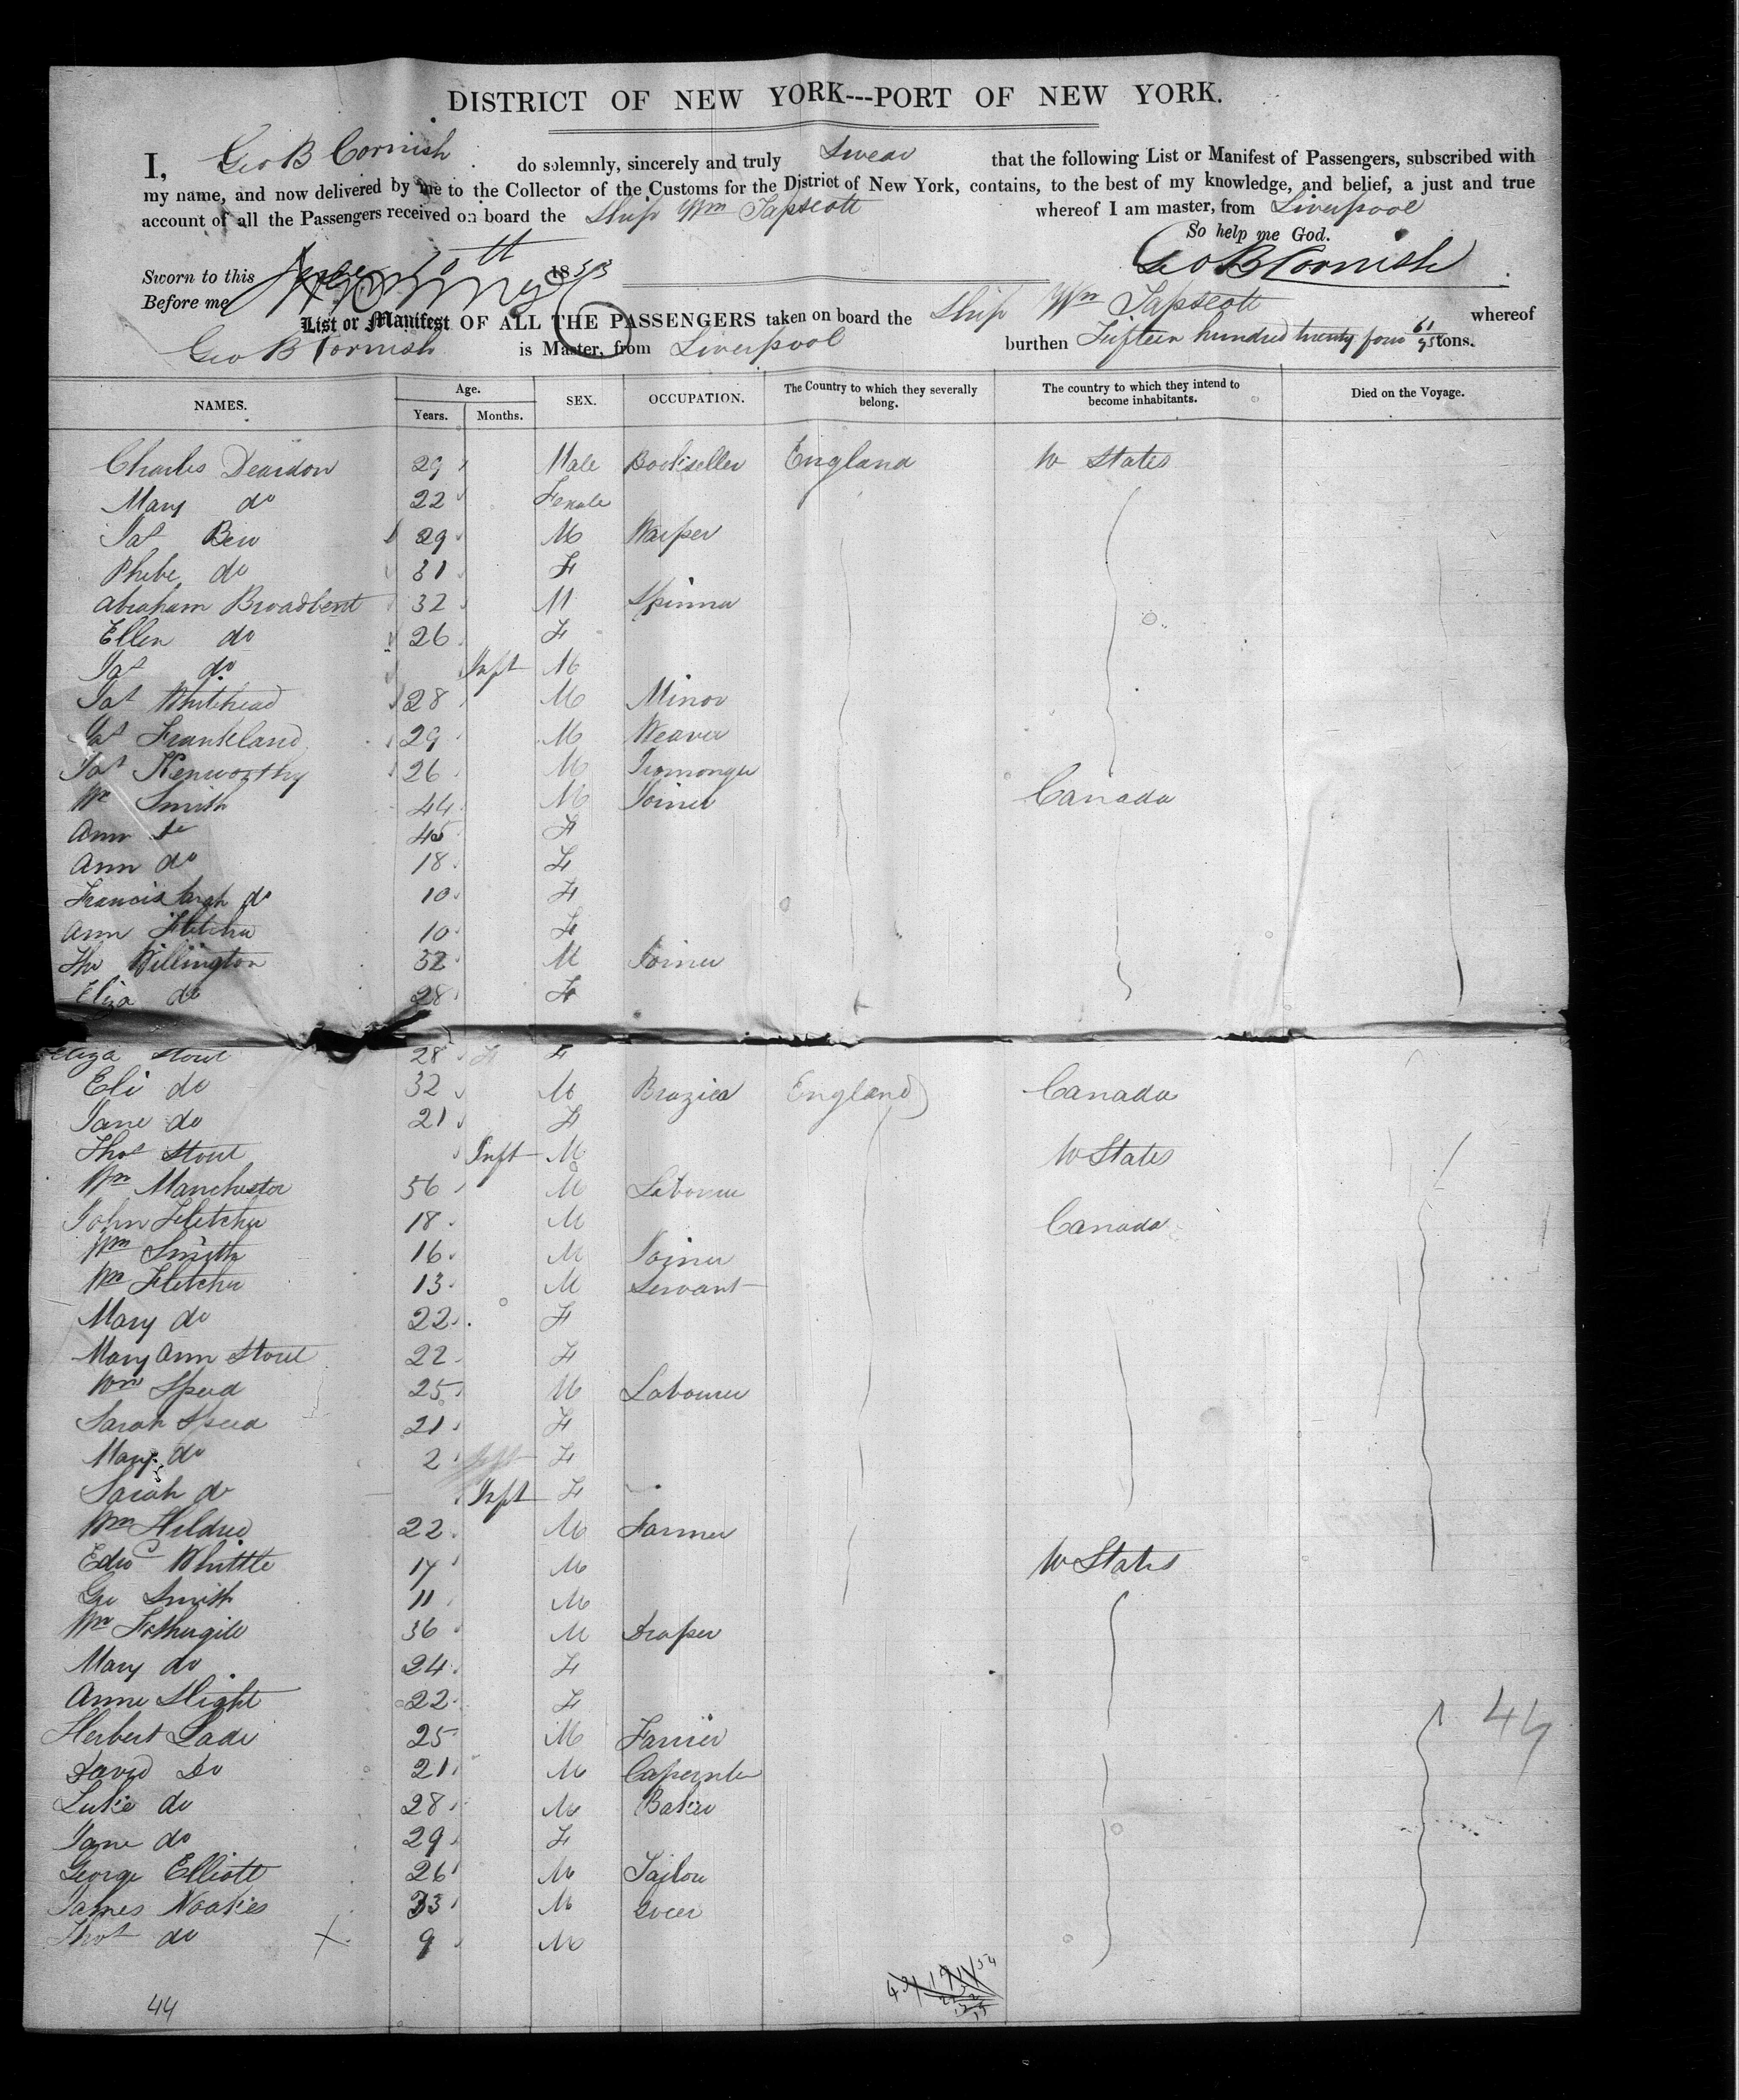 DISTRICT OF NEW YORK---PORT OF NEW YORK.
I, Geo B Cornish do solemnly, sincerely and truly Swear that the following List or Manifest of Passengers, subscribed with
my name, and now delivered by me to the Collector of the Customs for the District of New York, contains, to the best of my knowledge, and belief, a just and true
account of all the Passengers received on board the Ship Wm Tapscott whereof I am master, from Liverpool
So help me God.
Sworn to this 10th 1853 Geo B Cornish
Before me
List or Manifest OF ALL THE PASSENGERS taken on board the Ship Wm Tapscott whereof
Geo B Cornish is Master, from Liverpool burthen Fifteen hundred twenty four 61/95 tons.
NAMES. Age. Years. Months. SEX. OCCUPATION. The Country to which they severally belong. The country to which they intend to become inhabitants. Died on the Voyage.
Charles Deardon 29 Male Bookseller England U States
Mary do 22 Female
Jas Bew 29 M Warper
Phebe do 31 F
Abraham Broadbent 32 M Spinner
Ellen do 26 F
Jas do Inft M
Jas Whitehead 28 M Minor
Jas Frankland 29 M Weaver
Jas Kenworthy 26 M Iromonger
Wm Smith 44 M Joiner Canada
Ann do 45 F
Ann do 18 F
Francis Sarah do 10 F
Ann Fletcher 10 F
Tho Billington 32 M Joiner
Eliza do 28 F
Eliza Stout 28 F
Eli do 32 M Brazier England Canada
Jane do 21 F
Thos Stout Inft M U States
Wm Manchester 56 M Labourer
John Fletcher 18 M Canada
Wm Smith 16 M Joiner
Wm Fletcher 13 M Servant
Mary do 22 F
Mary Ann Stout 22 F
Wm Speed 25 M Labourer
Sarah Speed 21 F
Mary do 2 F
Sarah do Inft F
Wm Hildred 22 M Farmer
Edwd Whittle 17 M U States
Geo Smith 11 M
Wm Fothergill 36 M Draper
Mary do 24 F
Anne Slight 22 F
Herbert Lade 25 M Farrier
David Do 21 M Caprenter
Luke do 28 M Baker
Jane do 29 F
George Elliott 26 M Tailor
James Noakes 33 M Grocer
Thos do 9 M
44